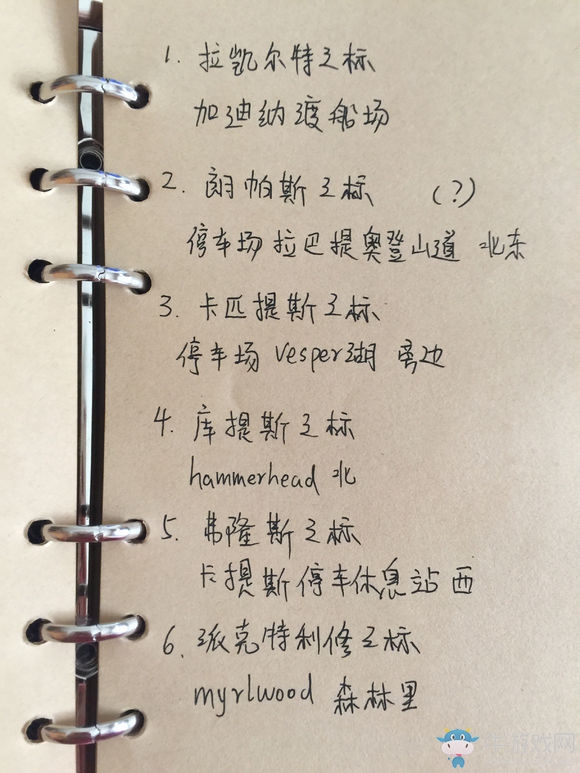 1. 拉凯尔特之标
加迪纳渡船场
2. 朗帕斯之标 (?)
停车场拉巴提奥登山道 北东
3. 卡匹提斯之标
停车场 Vesper湖 旁边
4. 库提斯之标
hammerhead 北
5. 弗隆斯之标
卡提斯停车休息站 西
6. 派克特利修之标
myrlwood 森林里
游戏网